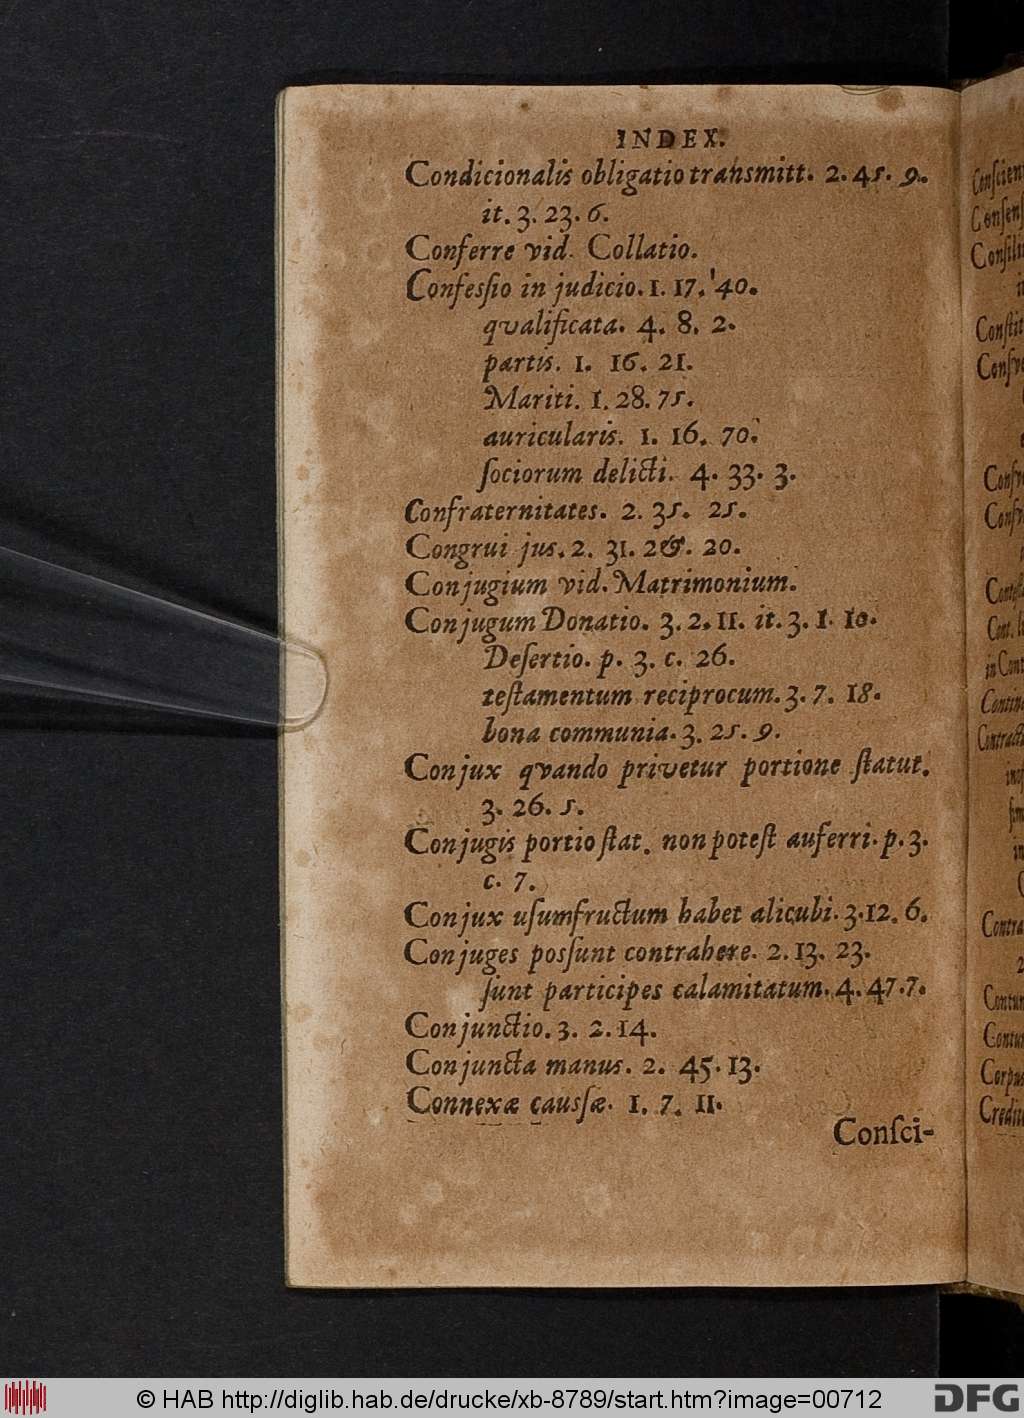 INDEX.
Condicionalis obligatio transmitt. 2. 45. 9.
it. 3. 23. 6.
Conferre vid. Collatio.
Confesſio in judicio. 1. 17. 40.
qvalificata. 4. 8. 2.
partis. 1. 16. 21.
Mariti. 1. 28. 75.
auricularis. 1. 16. 70.
ſociorum delicti. 4. 33. 3.
Confraternitates. 2. 35. 25.
Congrui jus. 2. 31. 2 &. 20.
Conjugium vid. Matrimonium.
Conjugum Donatio. 3. 2. 11. it. 3. 1. 10.
Deſertio. p. 3. c. 26.
teſtamentum reciprocum. 3. 7. 18.
bona communia. 3. 25. 9.
Conjux qvando privetur portione ſtatut.
3. 26. 5.
Conjugis portio ſtat. non poteſt auferri. p. 3.
c. 7.
Conjux uſumfructum habet alicubi. 3. 12. 6.
Conjuges posſunt contrahere. 2. 13. 23.
ſunt participes calamitatum. 4. 47. 7.
Conjunctio. 3. 2. 14.
Conjuncta manus. 2. 45. 13.
Connexæ causſæ. 1. 7. 11.
Conſci-
© HAB http://diglib.hab.de/drucke/xb-8789/start.htm?image=00712
DFG